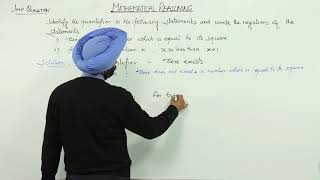 Imp Question
MATHEMATICAL REASONING
Identify the quantifier in the following statements and write the negations of the
statements
i) There which is equal to its square
ii) x, x is less than x+1
Solution There exists
There does not exists a number which is equal to its square
For